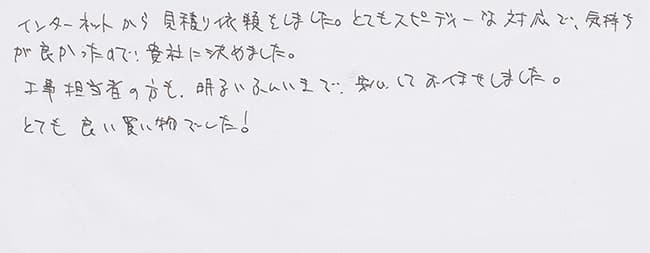 インターネットから見積り依頼をしました。とてもスピーディーな対応で、気持ち
が良かったので、貴社に決めました。
工事担当者の方も、明るいふんいきで、安心してお任せしました。
とても良い買い物でした!